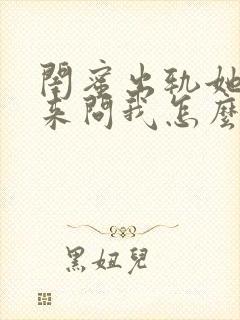 閨蜜出軌她
來問我怎麼
黑妞兒